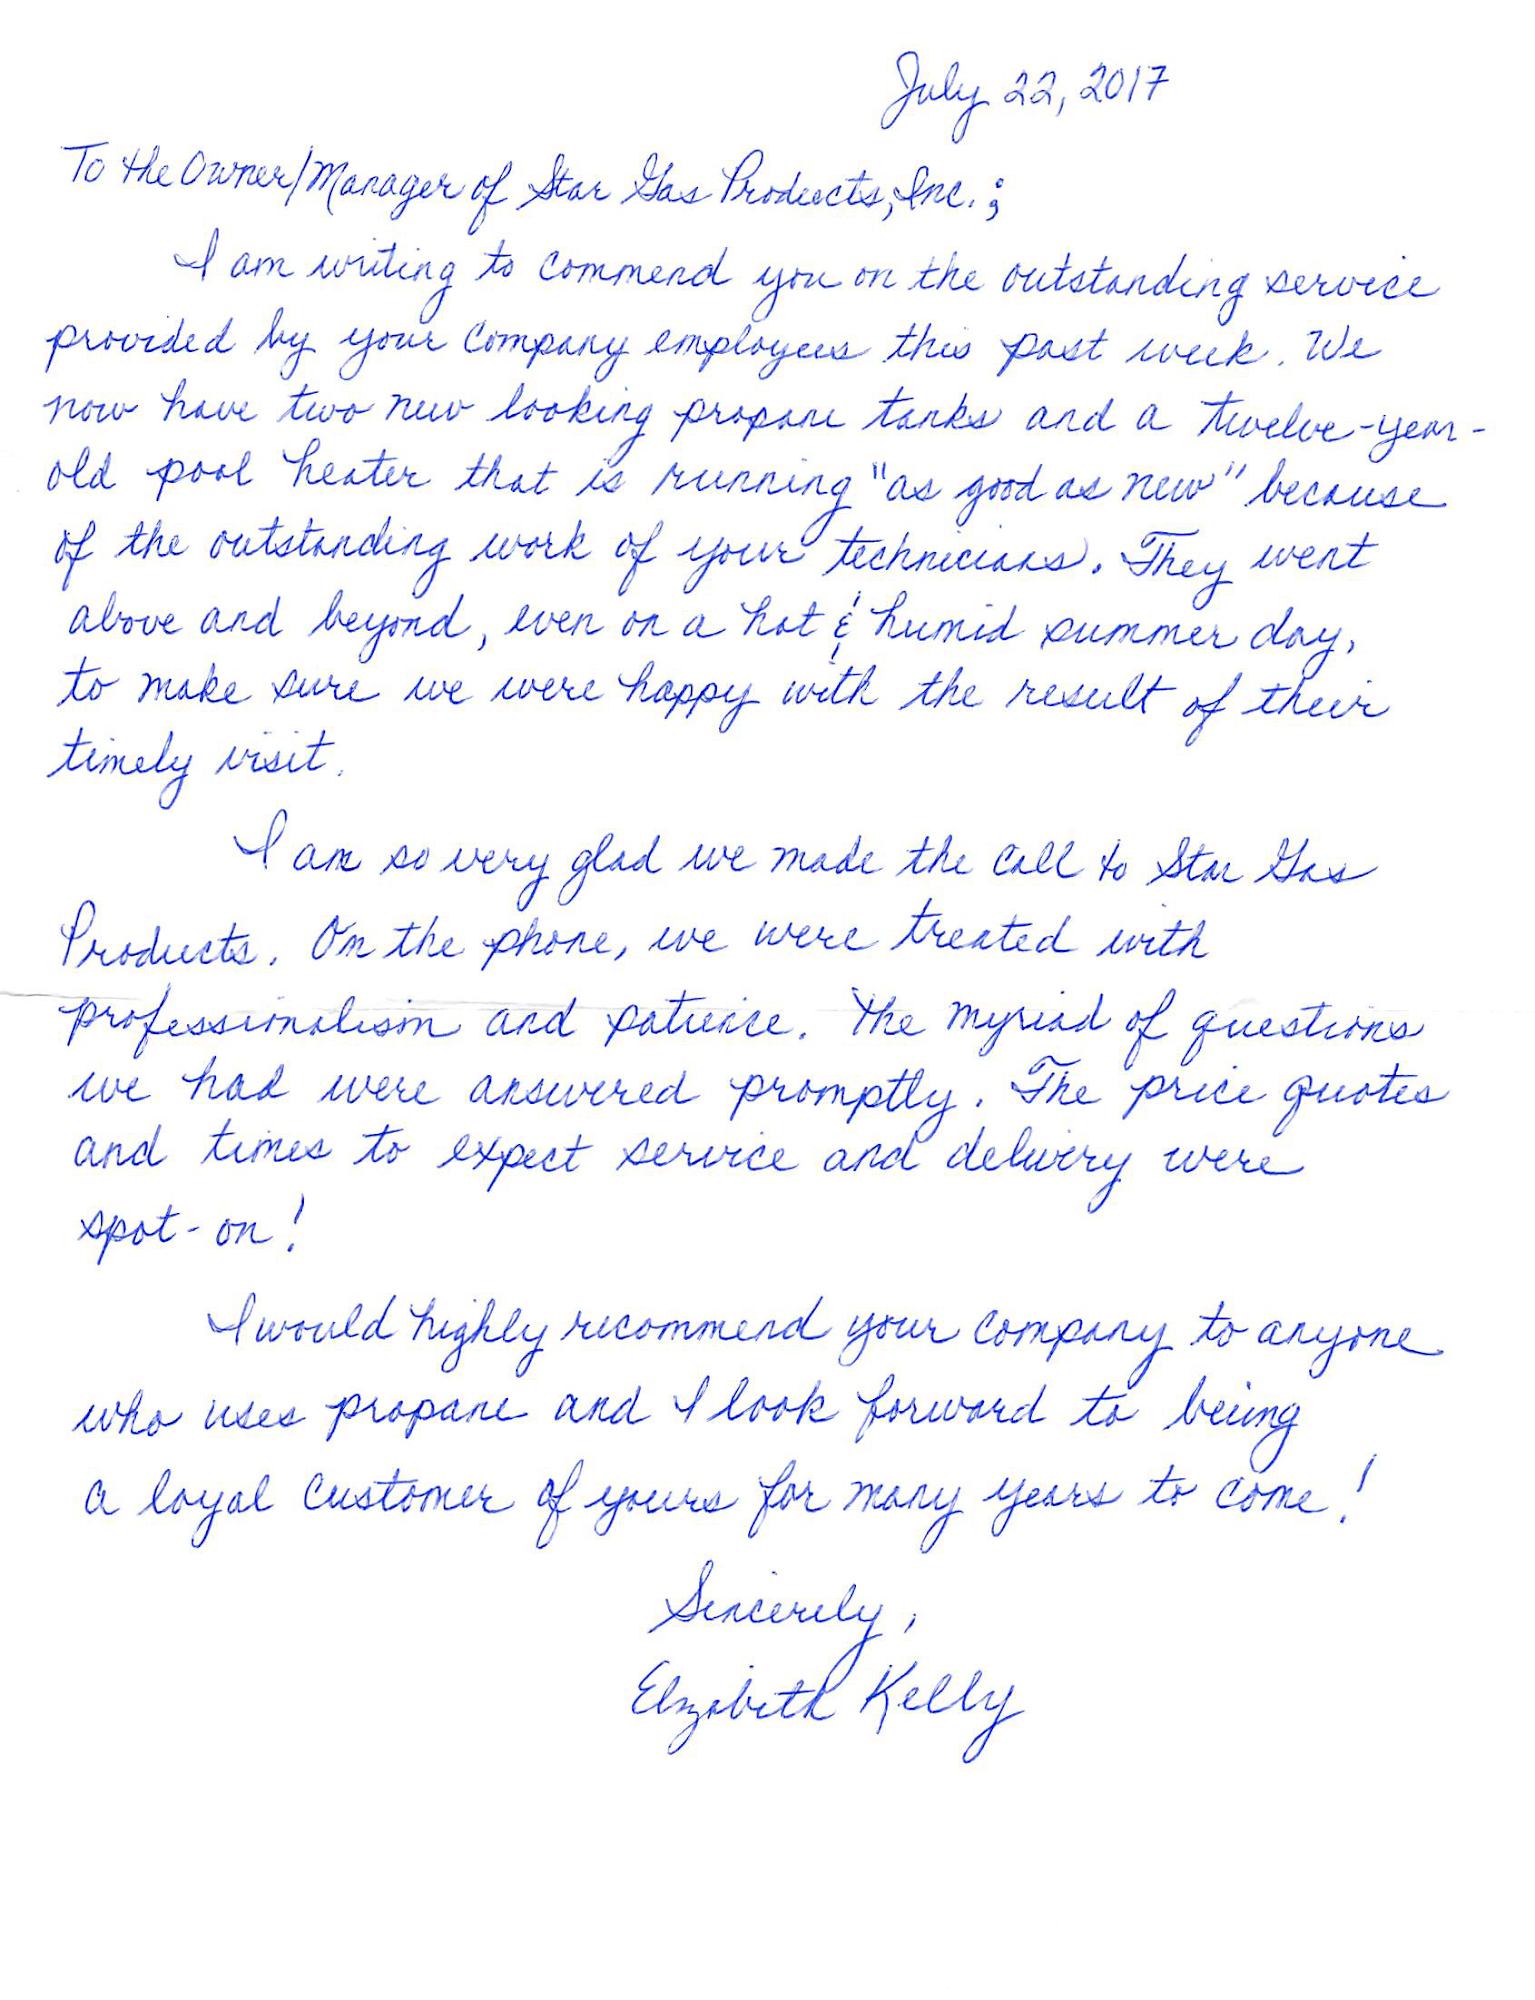 July 22, 2017
To the Owner/Manager of Star Gas Products, Inc.;
I am writing to commend you on the outstanding service
provided by your company employees this past week. We
now have two new looking propane tanks and a twelve-year-
old pool heater that is running "as good as new" because
of the outstanding work of your technicians. They went
above and beyond, even on a hot & humid summer day,
to make sure we were happy with the result of their
timely visit.
I am so very glad we made the call to Star Gas
Products. On the phone, we were treated with
professionalism and patience. The myriad of questions
we had were answered promptly. The price quotes
and times to expect service and delivery were
spot-on!
I would highly recommend your company to anyone
who uses propane and I look forward to being
a loyal customer of yours for many years to come!
Sincerely,
Elizabeth Kelly